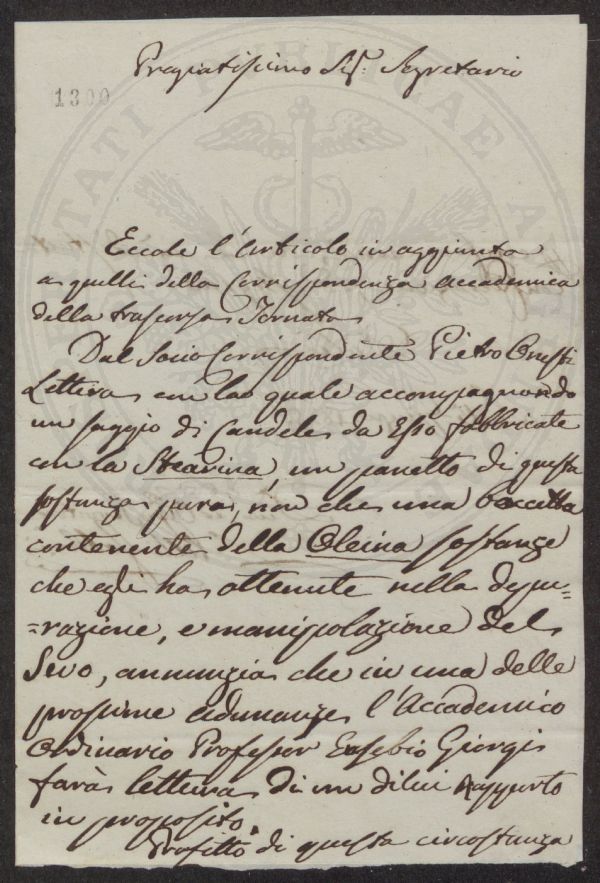 Pregiatissimo Sig. Segretario
1300
Eccole l'articolo in aggiunta
a quelli della Corrispondenza accademica
della trascorsa Tornata
Dal Socio Corrispondente Pietro Onesti
Lettera con la quale accompagnando
un saggio di Candele da Esso fabbricate
con la Stearina, un panetto di questa
sostanza pura, non che una boccetta
contenente della Oleina sostanze
che egli ha ottenute nella depu=
=razione, e manipolazione del
Sevo, annunzia che in una delle
prossime adunanze l'Accademico
Ordinario Professor Eusebio Giorgi
farà lettura di un di lui rapporto
in proposito.
Profitto di questa circostanza